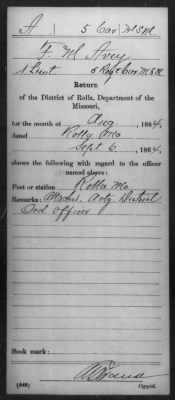 A | 5 Cav M S M
F. M. Avey
1 Lieut 5 Reg't Cav M.S.M.
Return
of the District of Rolla, Department of the
Missouri,
for the month of Aug, 1864.
dated Rolla Mo
Sept 6, 1864.
shows the following with regard to the officer
named above:
Post or station Rolla Mo
Remarks: Actg. District
Ord officer
Book mark:
(546) Copyist.